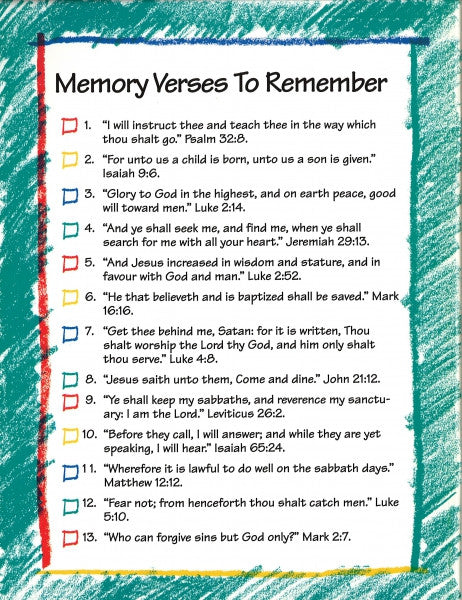 Memory Verses To Remember
1. "I will instruct thee and teach thee in the way which
thou shalt go." Psalm 32:8.
2. "For unto us a child is born, unto us a son is given."
Isaiah 9:6.
3. "Glory to God in the highest, and on earth peace, good
will toward men." Luke 2:14.
4. "And ye shall seek me, and find me, when ye shall
search for me with all your heart." Jeremiah 29:13.
5. "And Jesus increased in wisdom and stature, and in
favour with God and man." Luke 2:52.
6. "He that believeth and is baptized shall be saved." Mark
16:16.
7. "Get thee behind me, Satan: for it is written, Thou
shalt worship the Lord thy God, and him only shalt
thou serve." Luke 4:8.
8. "Jesus saith unto them, Come and dine." John 21:12.
9. "Ye shall keep my sabbaths, and reverence my sanctu-
ary: I am the Lord." Leviticus 26:2.
10. "Before they call, I will answer; and while they are yet
speaking, I will hear." Isaiah 65:24.
11. "Wherefore it is lawful to do well on the sabbath days."
Matthew 12:12.
12. "Fear not; from henceforth thou shalt catch men." Luke
5:10.
13. "Who can forgive sins but God only?" Mark 2:7.